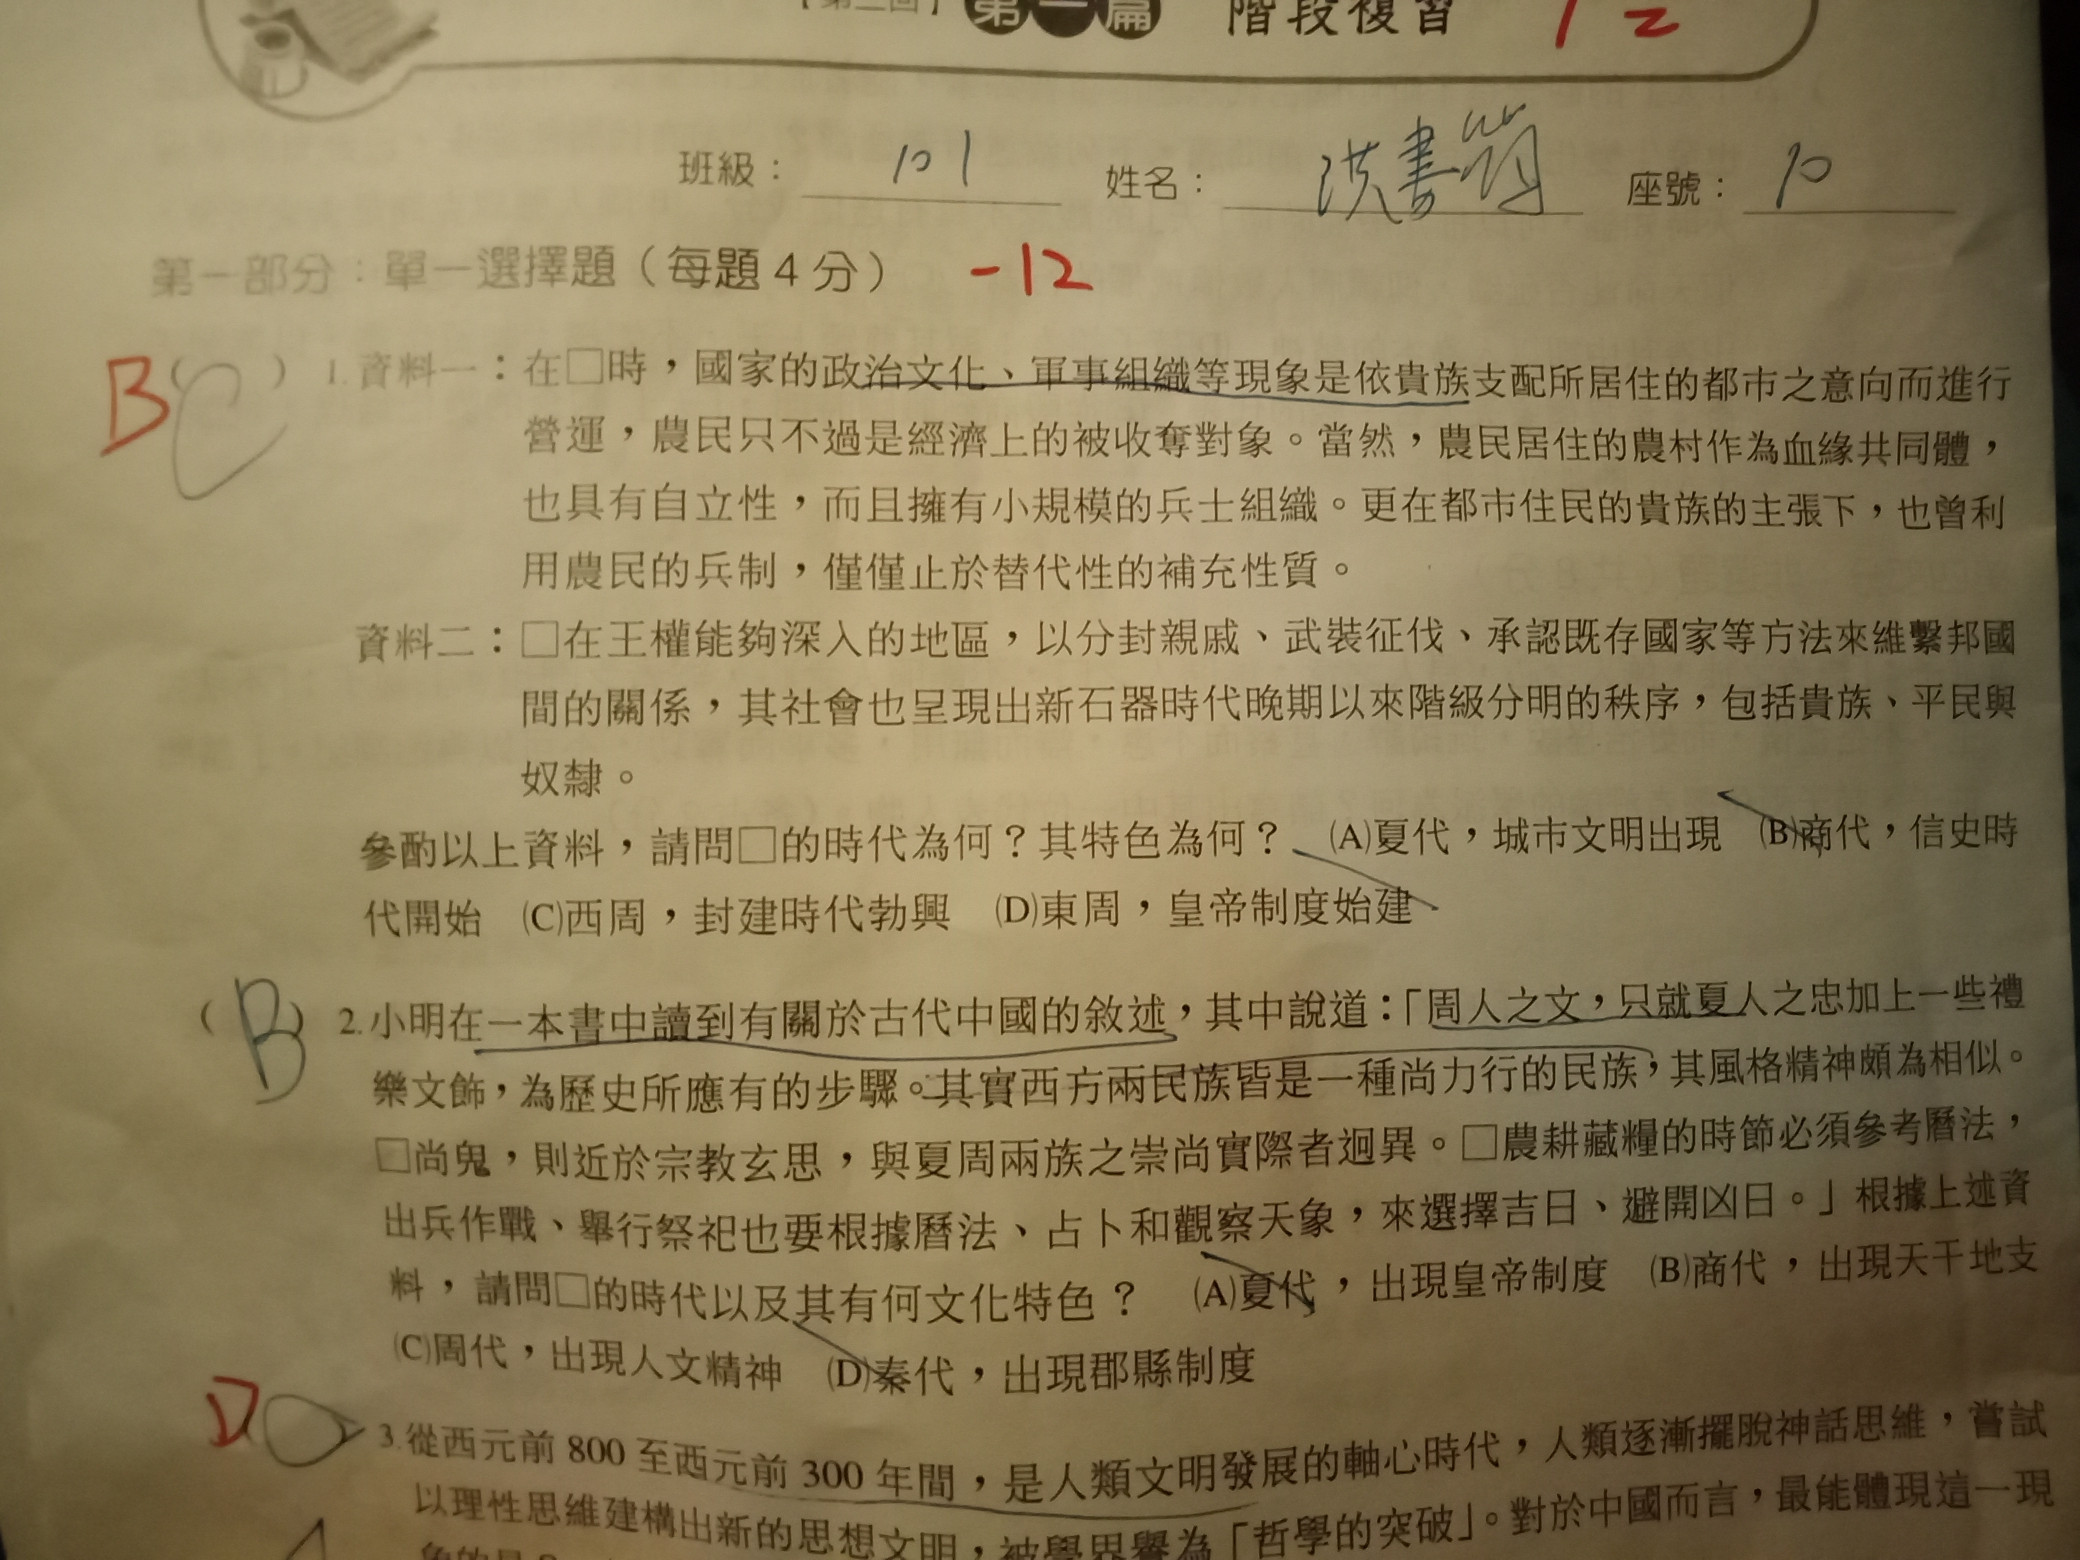 第一篇 階段複習 72
班級：101 姓名：洪書 座號：10
第一部分：單一選擇題（每題4分） -12
B (C) 1.資料一：在□時，國家的政治文化、軍事組織等現象是依貴族支配所居住的都市之意向而進行
營運，農民只不過是經濟上的被收奪對象。當然，農民居住的農村作為血緣共同體，
也具有自立性，而且擁有小規模的兵士組織。更在都市住民的貴族的主張下，也曾利
用農民的兵制，僅僅止於替代性的補充性質。
資料二：□在王權能夠深入的地區，以分封親戚、武裝征伐、承認既存國家等方法來維繫邦國
間的關係，其社會也呈現出新石器時代晚期以來階級分明的秩序，包括貴族、平民與
奴隸。
參酌以上資料，請問□的時代為何？其特色為何？ (A)夏代，城市文明出現 (B)商代，信史時
代開始 (C)西周，封建時代勃興 (D)東周，皇帝制度始建
(B) 2.小明在一本書中讀到有關於古代中國的敘述，其中說道：「周人之文，只就夏人之忠加上一些禮
樂文飾，為歷史所應有的步驟。其實西方兩民族皆是一種尚力行的民族，其風格精神頗為相似。
□尚鬼，則近於宗教玄思，與夏周兩族之崇尚實際者迥異。□農耕藏糧的時節必須參考曆法，
出兵作戰、舉行祭祀也要根據曆法、占卜和觀察天象，來選擇吉日、避開凶日。」根據上述資
料，請問□的時代以及其有何文化特色？ (A)夏代，出現皇帝制度 (B)商代，出現天干地支
(C)周代，出現人文精神 (D)秦代，出現郡縣制度
D 3.從西元前800至西元前300年間，是人類文明發展的軸心時代，人類逐漸擺脫神話思維，嘗試
以理性思維建構出新的思想文明，被學界譽為「哲學的突破」。對於中國而言，最能體現這一現